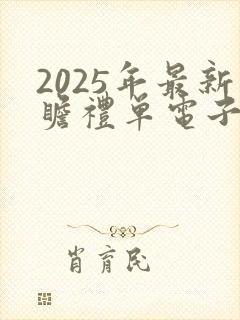 2025年最新
瞻禮单電子
肖育民